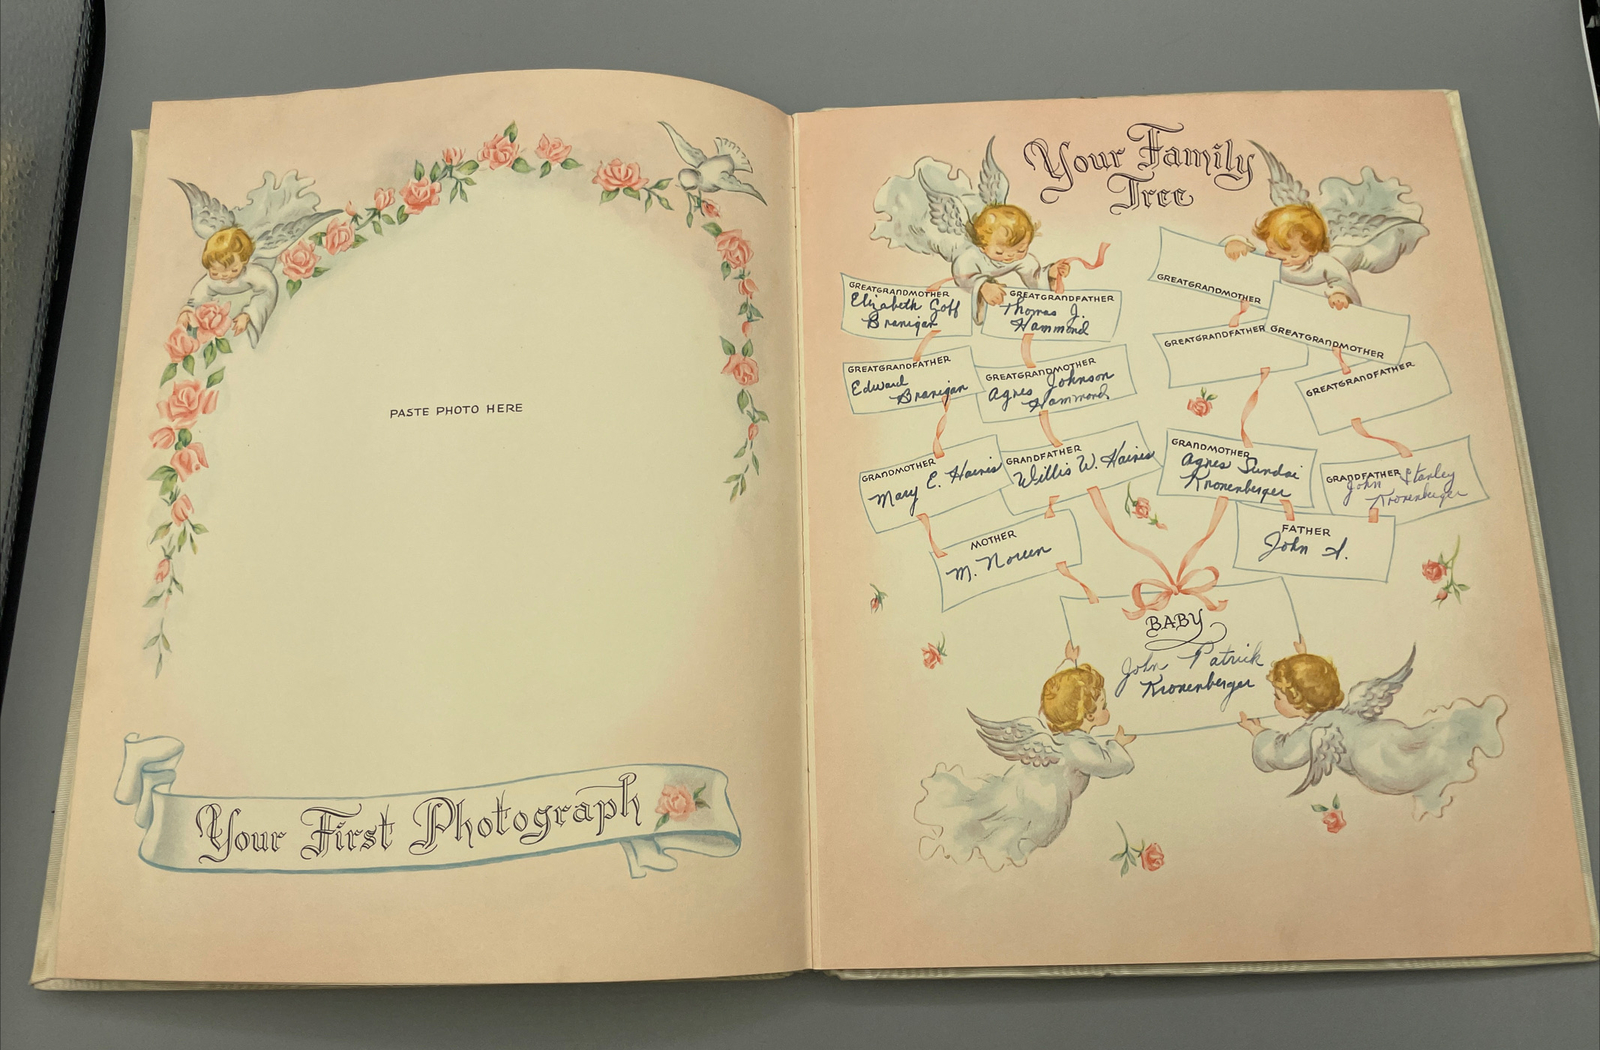 PASTE PHOTO HERE
Your First Photograph
Your Family
Tree
GREATGRANDMOTHER
Elizabeth Goff
Branigan
GREATGRANDFATHER
Thomas J.
Hammond
GREATGRANDMOTHER
GREATGRANDFATHER
GREATGRANDMOTHER
GREATGRANDFATHER
GREATFATHER
Edward
Branigan
GREATGRANDMOTHER
Agnes Johnson
Hammond
GRANDMOTHER
Mary E. Hainis
GRANDFATHER
Willis W. Hainis
GRANDMOTHER
Agnes Sundai
Kronenberger
GRANDFATHER
John Stanley
Kronenberger
MOTHER
M. Noreen
FATHER
John S.
BABY
John Patrick
Kronenberger